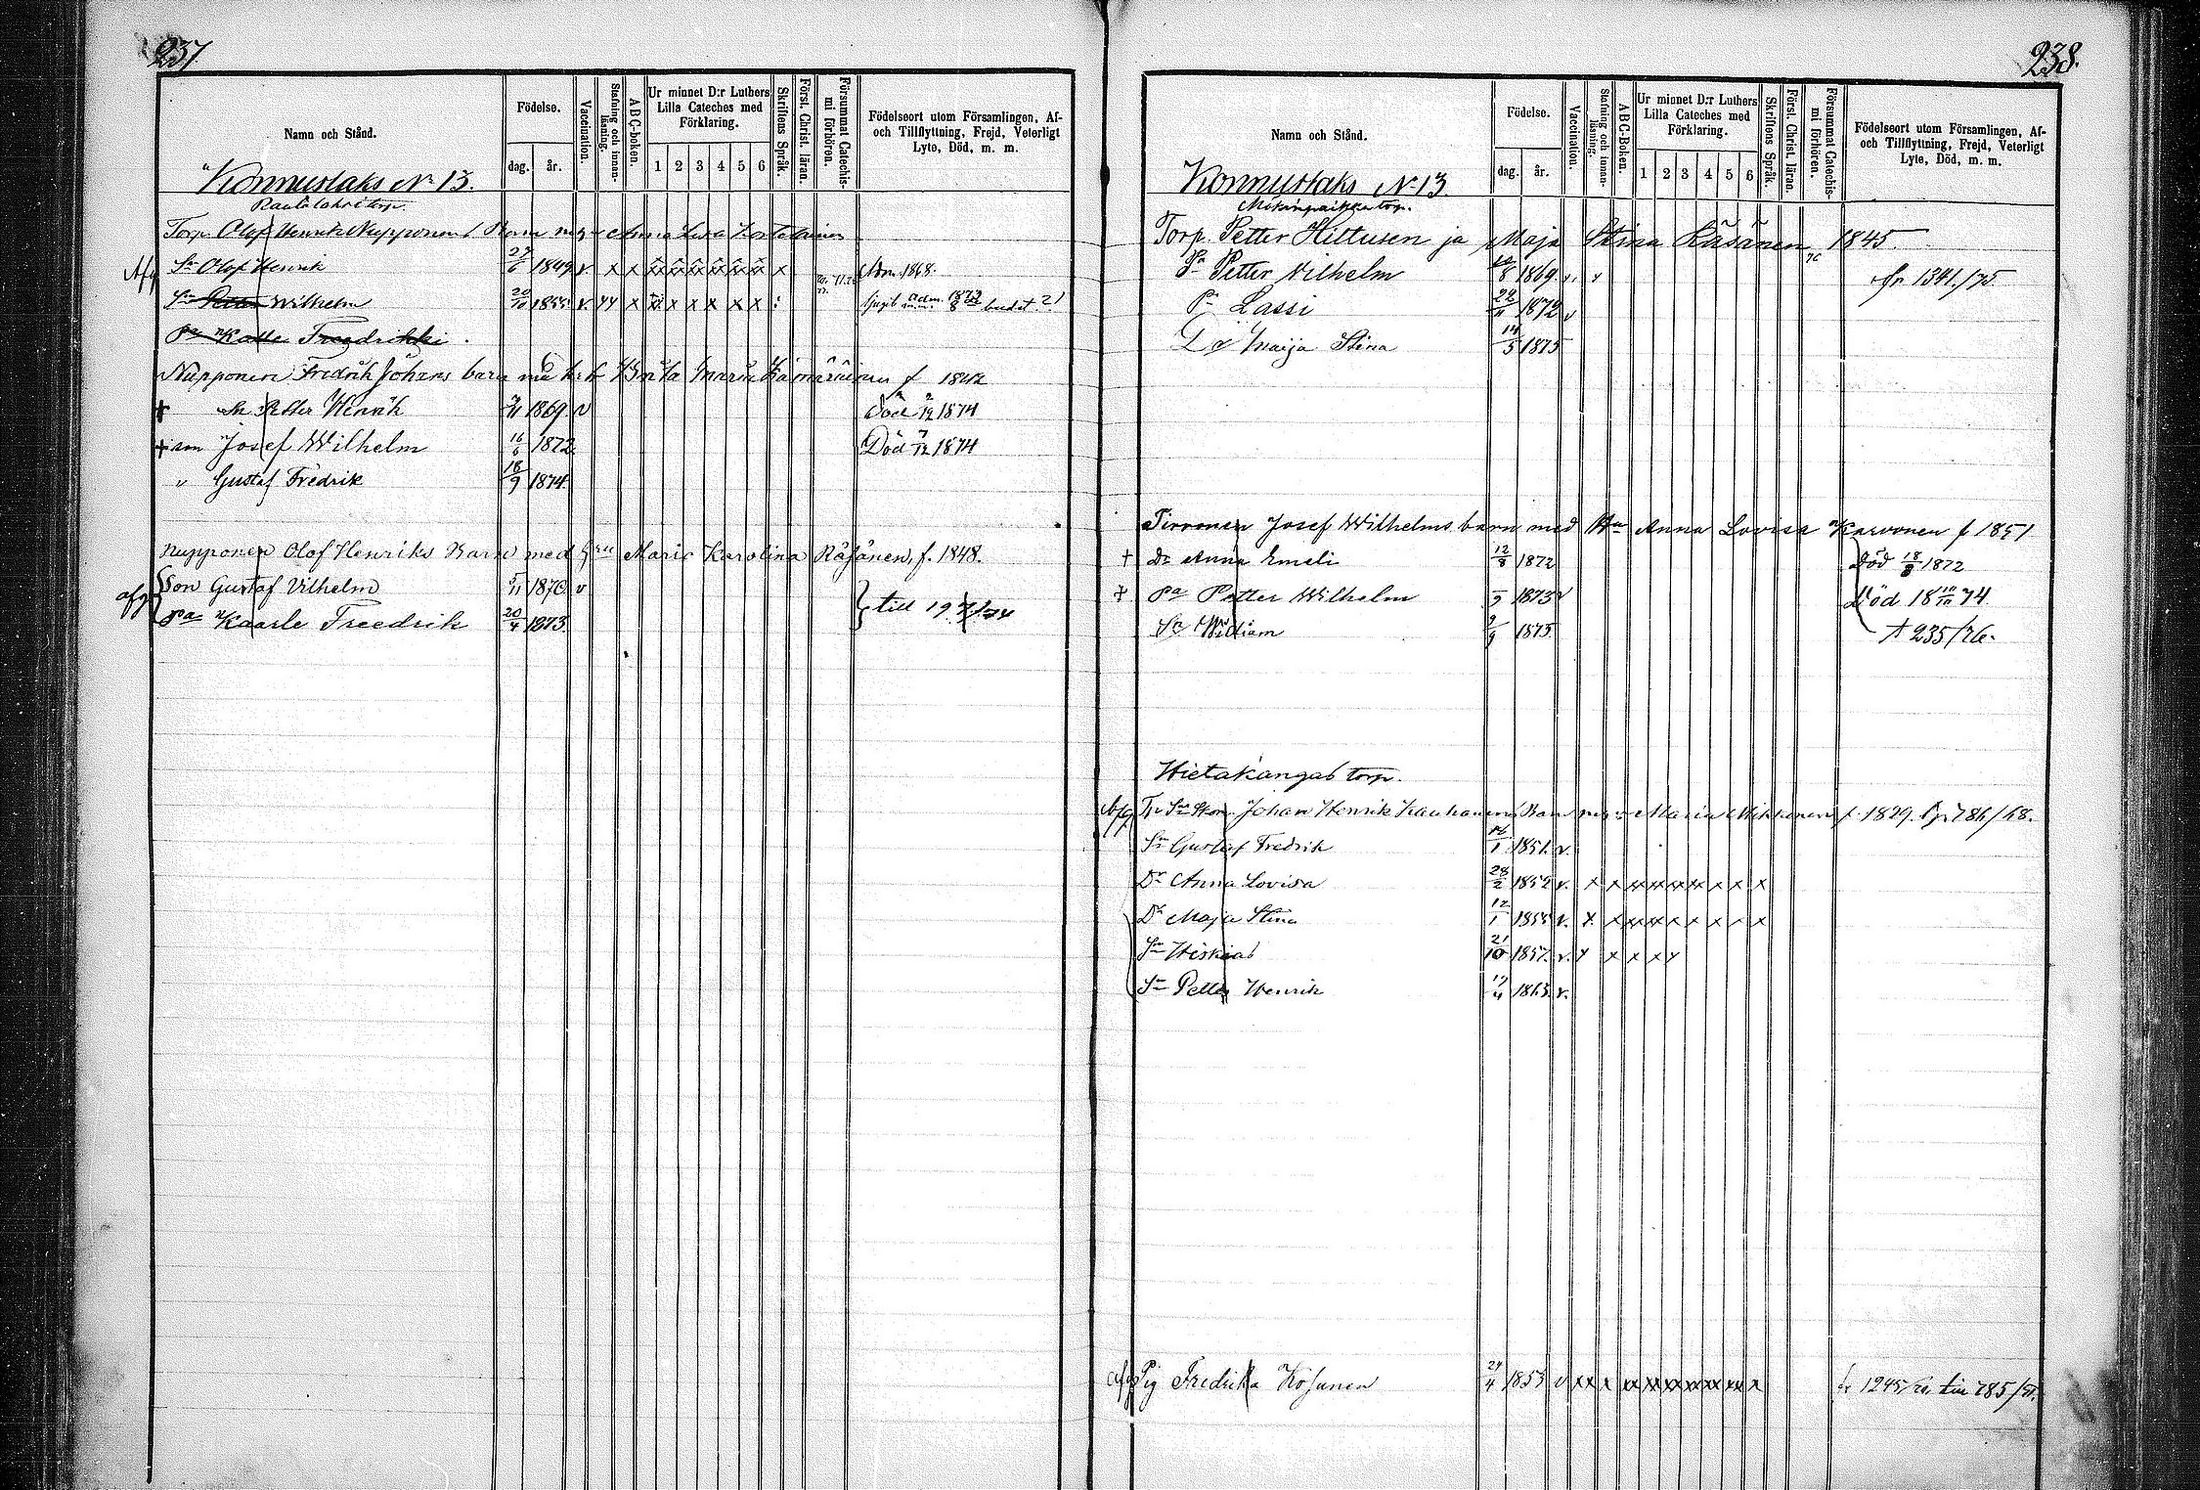 237.
Namn och Stånd.
Födelse.
dag. år.
Vaccination.
Stafning och innan-läsning.
ABC-boken.
Ur minnet D:r Luthers Lilla Cateches med Förklaring.
1 2 3 4 5 6
Skriftens Språk.
Först. Christ. läran.
Försummat Catechis-mi förhören.
Födelseort utom Församlingen, Af- och Tillflyttning, Frejd, Veterligt Lyte, Död, m. m.
Konnuslaks No 13.
Rautalahti torp.
Torp. Olof Henrik Nupponen Barn Anna Lisa
Afg Sn Olof Henrik 27/6 1849 v x x x x x x x x x Adm. 1868.
Sn Petter Wilhelm 20/11 1855 v x x x x x x x adm. 1873
Pa Kalle Freedrikki.
Nupponen Fredrik Johans barn med h. h. Brita Maria f 1842
+ Sn Petter Henrik 1869 v Död 2/12 1874
+ son Josef Wilhelm 16/6 1872 Död 7/12 1874
" Gustaf Fredrik 18/9 1874.
Nupponen Olof Henriks Barn med Hru Maria Karolina Räsänen, f. 1848.
afg Son Gustaf Vilhelm 5/11 1870 v
Pa Kaarle Freedrik 20/4 1873. till 19
238.
Namn och Stånd.
Födelse.
dag. år.
Vaccination.
Stafning och innan-läsning.
ABC-Boken.
Ur minnet D:r Luthers Lilla Cateches med Förklaring.
1 2 3 4 5 6
Skriftens Språk.
Först. Christ. läran.
Försummat Catechis-mi förhören.
Födelseort utom Församlingen, Af- och Tillflyttning, Frejd, Veterligt Lyte, Död, m. m.
Konnuslaks No 13.
Mökinpaikka torp.
Torp. Petter Hiltusen ja Maja Stina Räsänen 1845
Pa Petter Vilhelm 8 1869. v. fr 1341./75
Pa Lassi 22/11 1872 v
Dr Maija Stina 14/5 1875
Tirronen Josef Wilhelms barn med Hu Anna Lovisa Karvonen f 1851
+ Dr Anna Emeli 12/8 1872 Död 18/8 1872
+ Pa Petter Wilhelm 9 1873 v Död 18 10/10 74
Sn William 2/9 1875 t 235/76.
Hietakangas torp.
Afg Johan Henrik Kauhanen Barn Maria Mikkonen f. 1829. fr 786/68.
Sn Gustaf Fredrik 16/1 1851. v.
Dr Anna Lovisa 28/2 1852 v. x x xx xx xx xx x x x
Dr Maja Stina 12/1 1855 v. x x xx xx x x x x x
Sn Hiskias 21/10 1857. v. x x x x x
Sn Petter Henrik 17/4 1863 v.
afg Pig Fredrika Kosunen 24/4 1853 v xx x xx xx xx xx xx xx x fr 1245/ till 785/